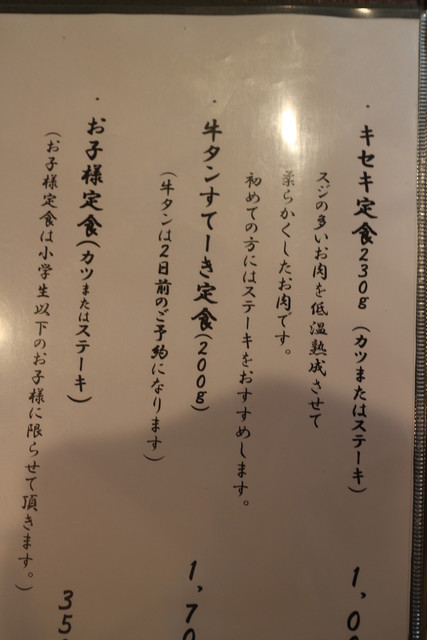 ・キセキ定食230g(カツまたはステーキ) 1,0
スジの多いお肉を低温熟成させて
柔らかくしたお肉です。
初めての方にはステーキをおすすめします。
・牛タンすてーき定食(200g) 1,70
(牛タンは2日前のご予約になります)
・お子様定食(カツまたはステーキ) 35
(お子様定食は小学生以下のお子様に限らせて頂きます。)